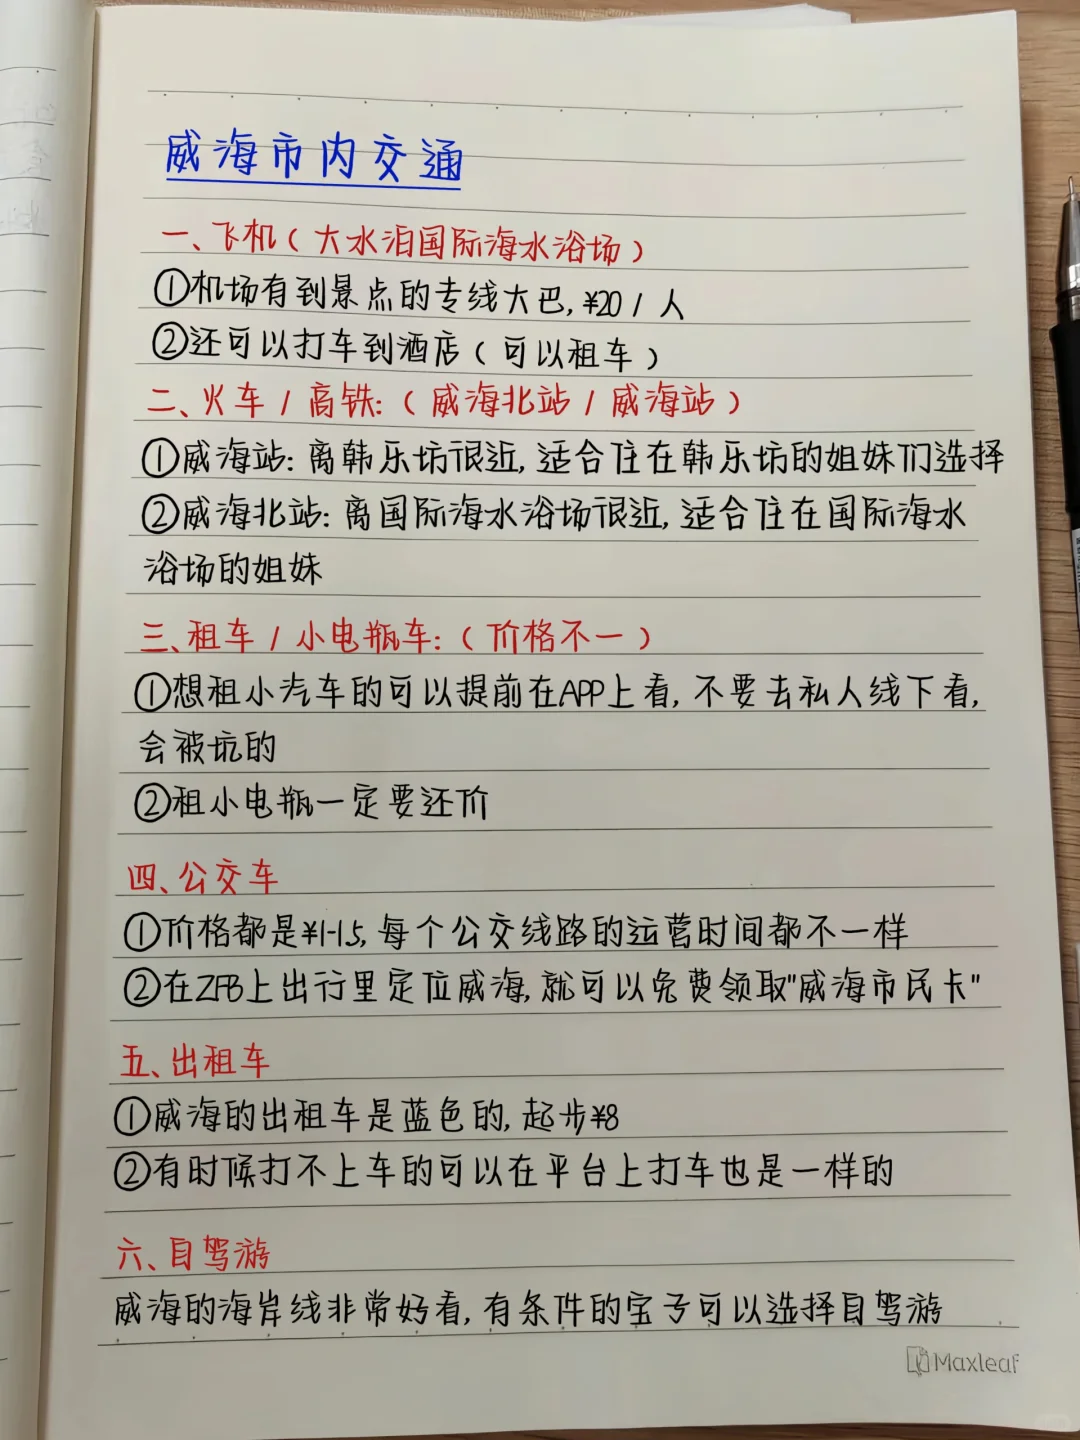 威海市内交通
一、飞机(大水泊国际海水浴场)
①机场有到景点的专线大巴,¥20/人
②还可以打车到酒店(可以租车)
二、火车/高铁:(威海北站/威海站)
①威海站:离韩乐坊很近,适合住在韩乐坊的姐妹们选择
②威海北站:离国际海水浴场很近,适合住在国际海水
浴场的姐妹
三、租车/小电瓶车:(价格不一)
①想租小汽车的可以提前在APP上看,不要去私人线下看,
会被坑的
②租小电瓶一定要还价
四、公交车
①价格都是¥1-1.5,每个公交线路的运营时间都不一样
②在ZFB上出行里定位威海,就可以免费领取"威海市民卡"
五、出租车
①威海的出租车是蓝色的,起步¥8
②有时候打不上车的可以在平台上打车也是一样的
六、自驾游
威海的海岸线非常好看,有条件的宝子可以选择自驾游
Maxleaf